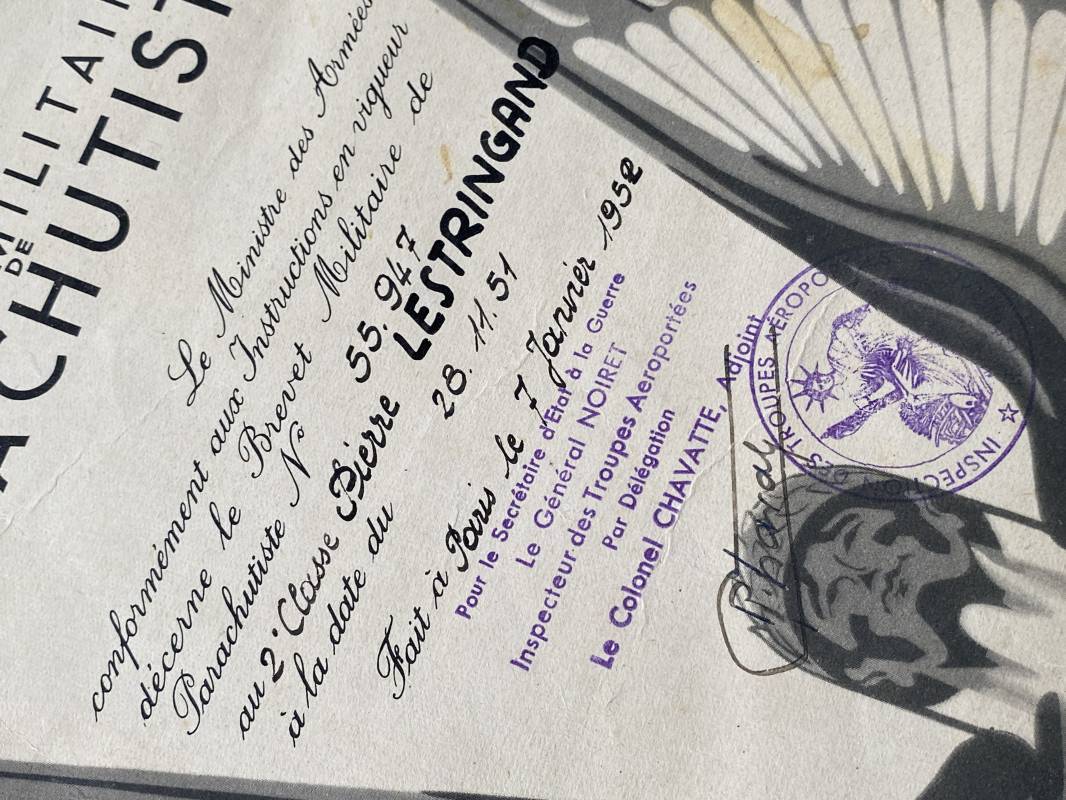 MILITAI
DE
ACHUTIST
Le Ministre des Armées
conformément aux Instructions en vigueur
décerne le Brevet Militaire de
Parachutiste N° 55.947
au 2° Classe Pierre LESTRINGAND
à la date du 28.11.51
Fait à Paris le 7 Janvier 1952
Pour le Secrétaire d'Etat à la Guerre
Le Général NOIRET
Inspecteur des Troupes Aéroportées
Par Délégation
Le Colonel CHAVATTE, Adjoint
INSPECTION DES TROUPES AÉROPORTÉES